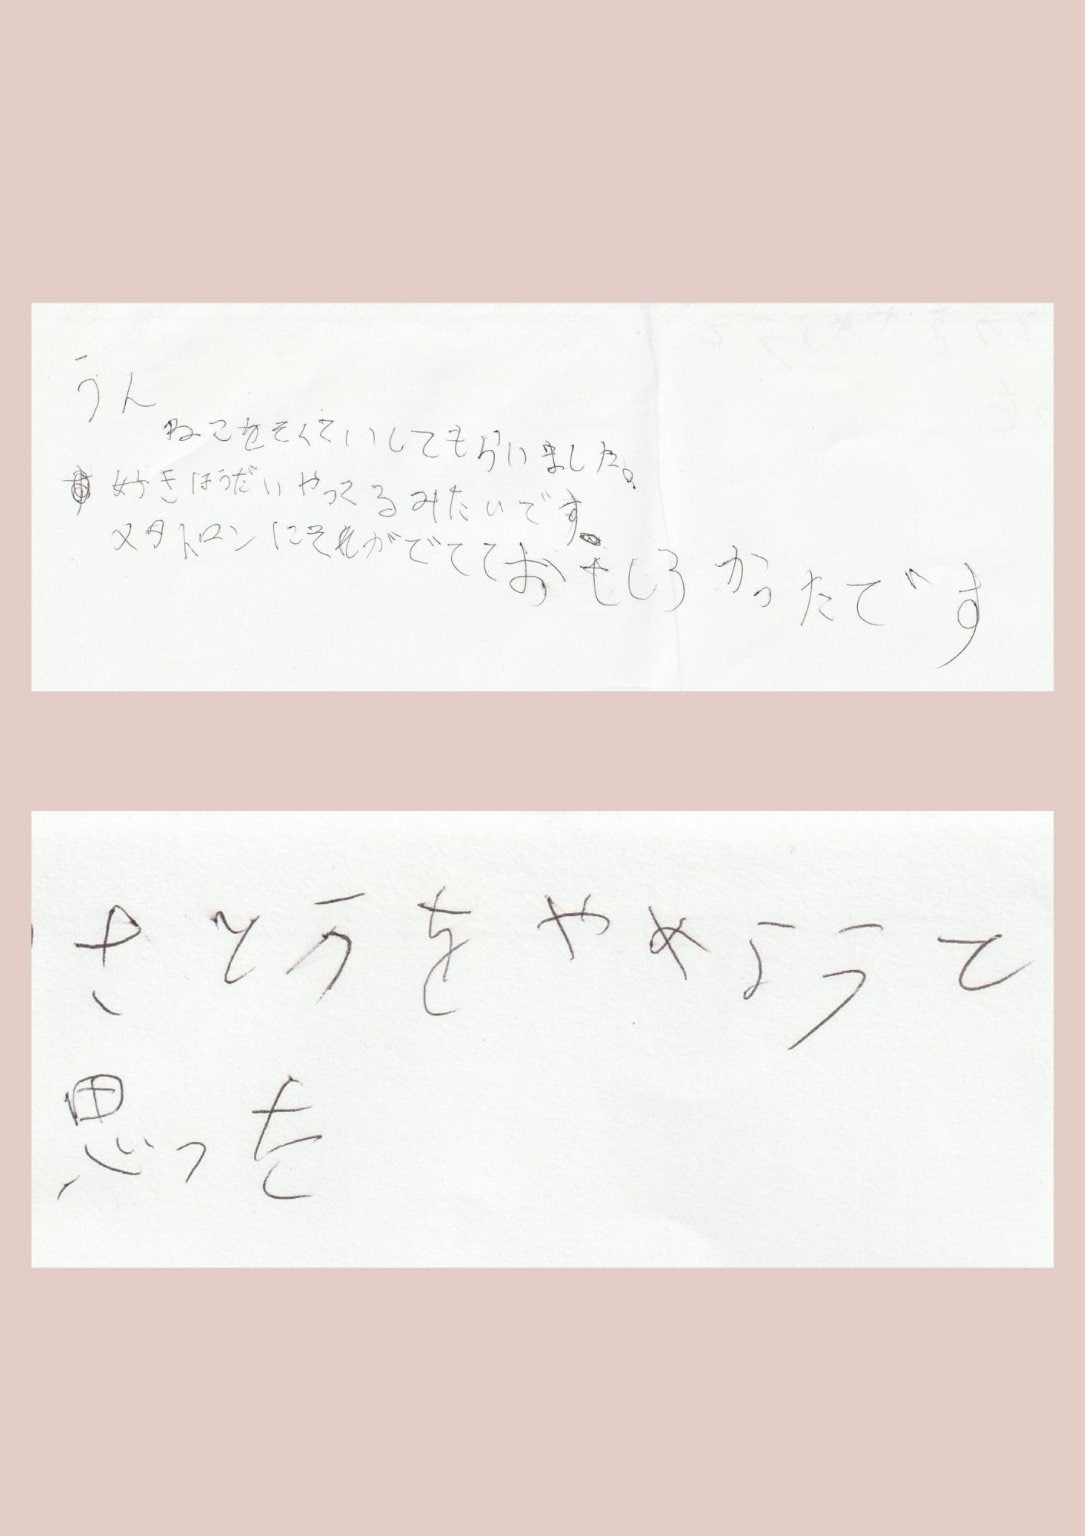 うん
ねこをそくていしてもらいました。
好きほうだいやってるみたいです。
メタトロンにそれがでてておもしろかったです
さとうをやめようと
思った